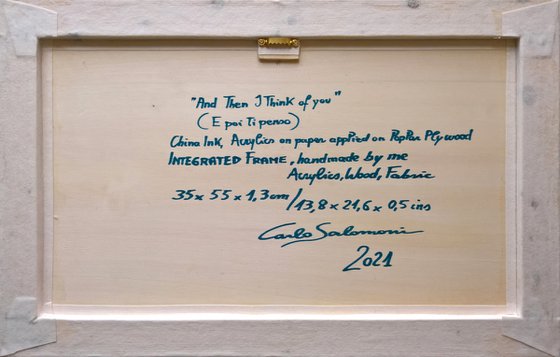 "And Then I Think of you"
(E poi Ti penso)
China Ink, Acrylics on paper applied on Poplar Plywood
INTEGRATED FRAME, handmade by me
Acrylics, Wood, Fabric
35 x 55 x 1,3 cm / 13,8 x 21,6 x 0,5 ins
Carlo Salomoni
2021